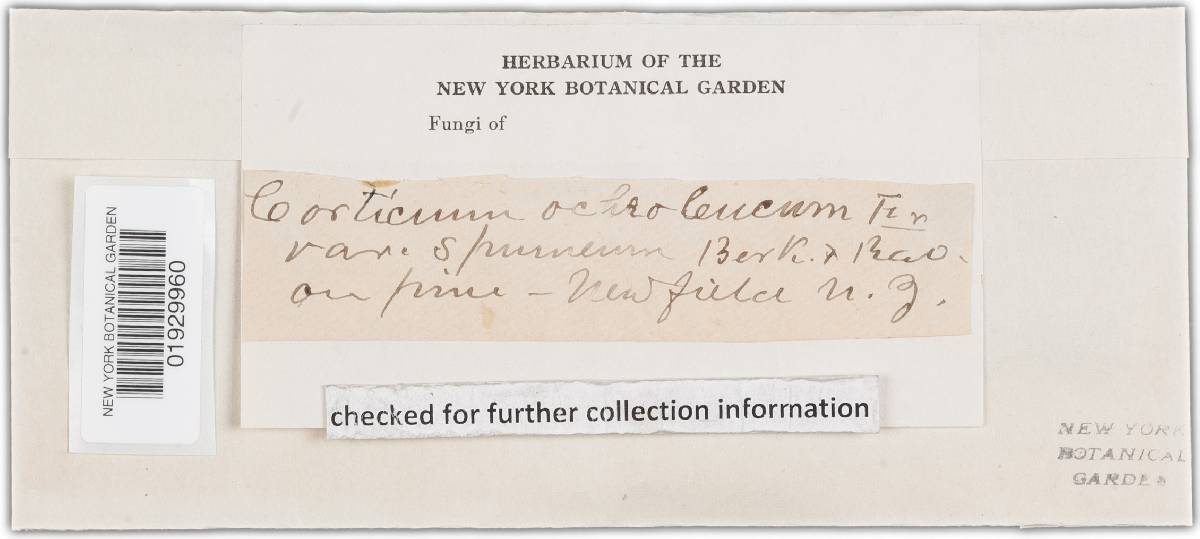 HERBARIUM OF THE
NEW YORK BOTANICAL GARDEN
Fungi of
Corticium ochroleucum Fr
var. spumeum Berk. & Rav.
on pine - Newfield N. J.
checked for further collection information
NEW YORK BOTANICAL GARDEN
01929960
NEW YORK
BOTANICAL
GARDEN